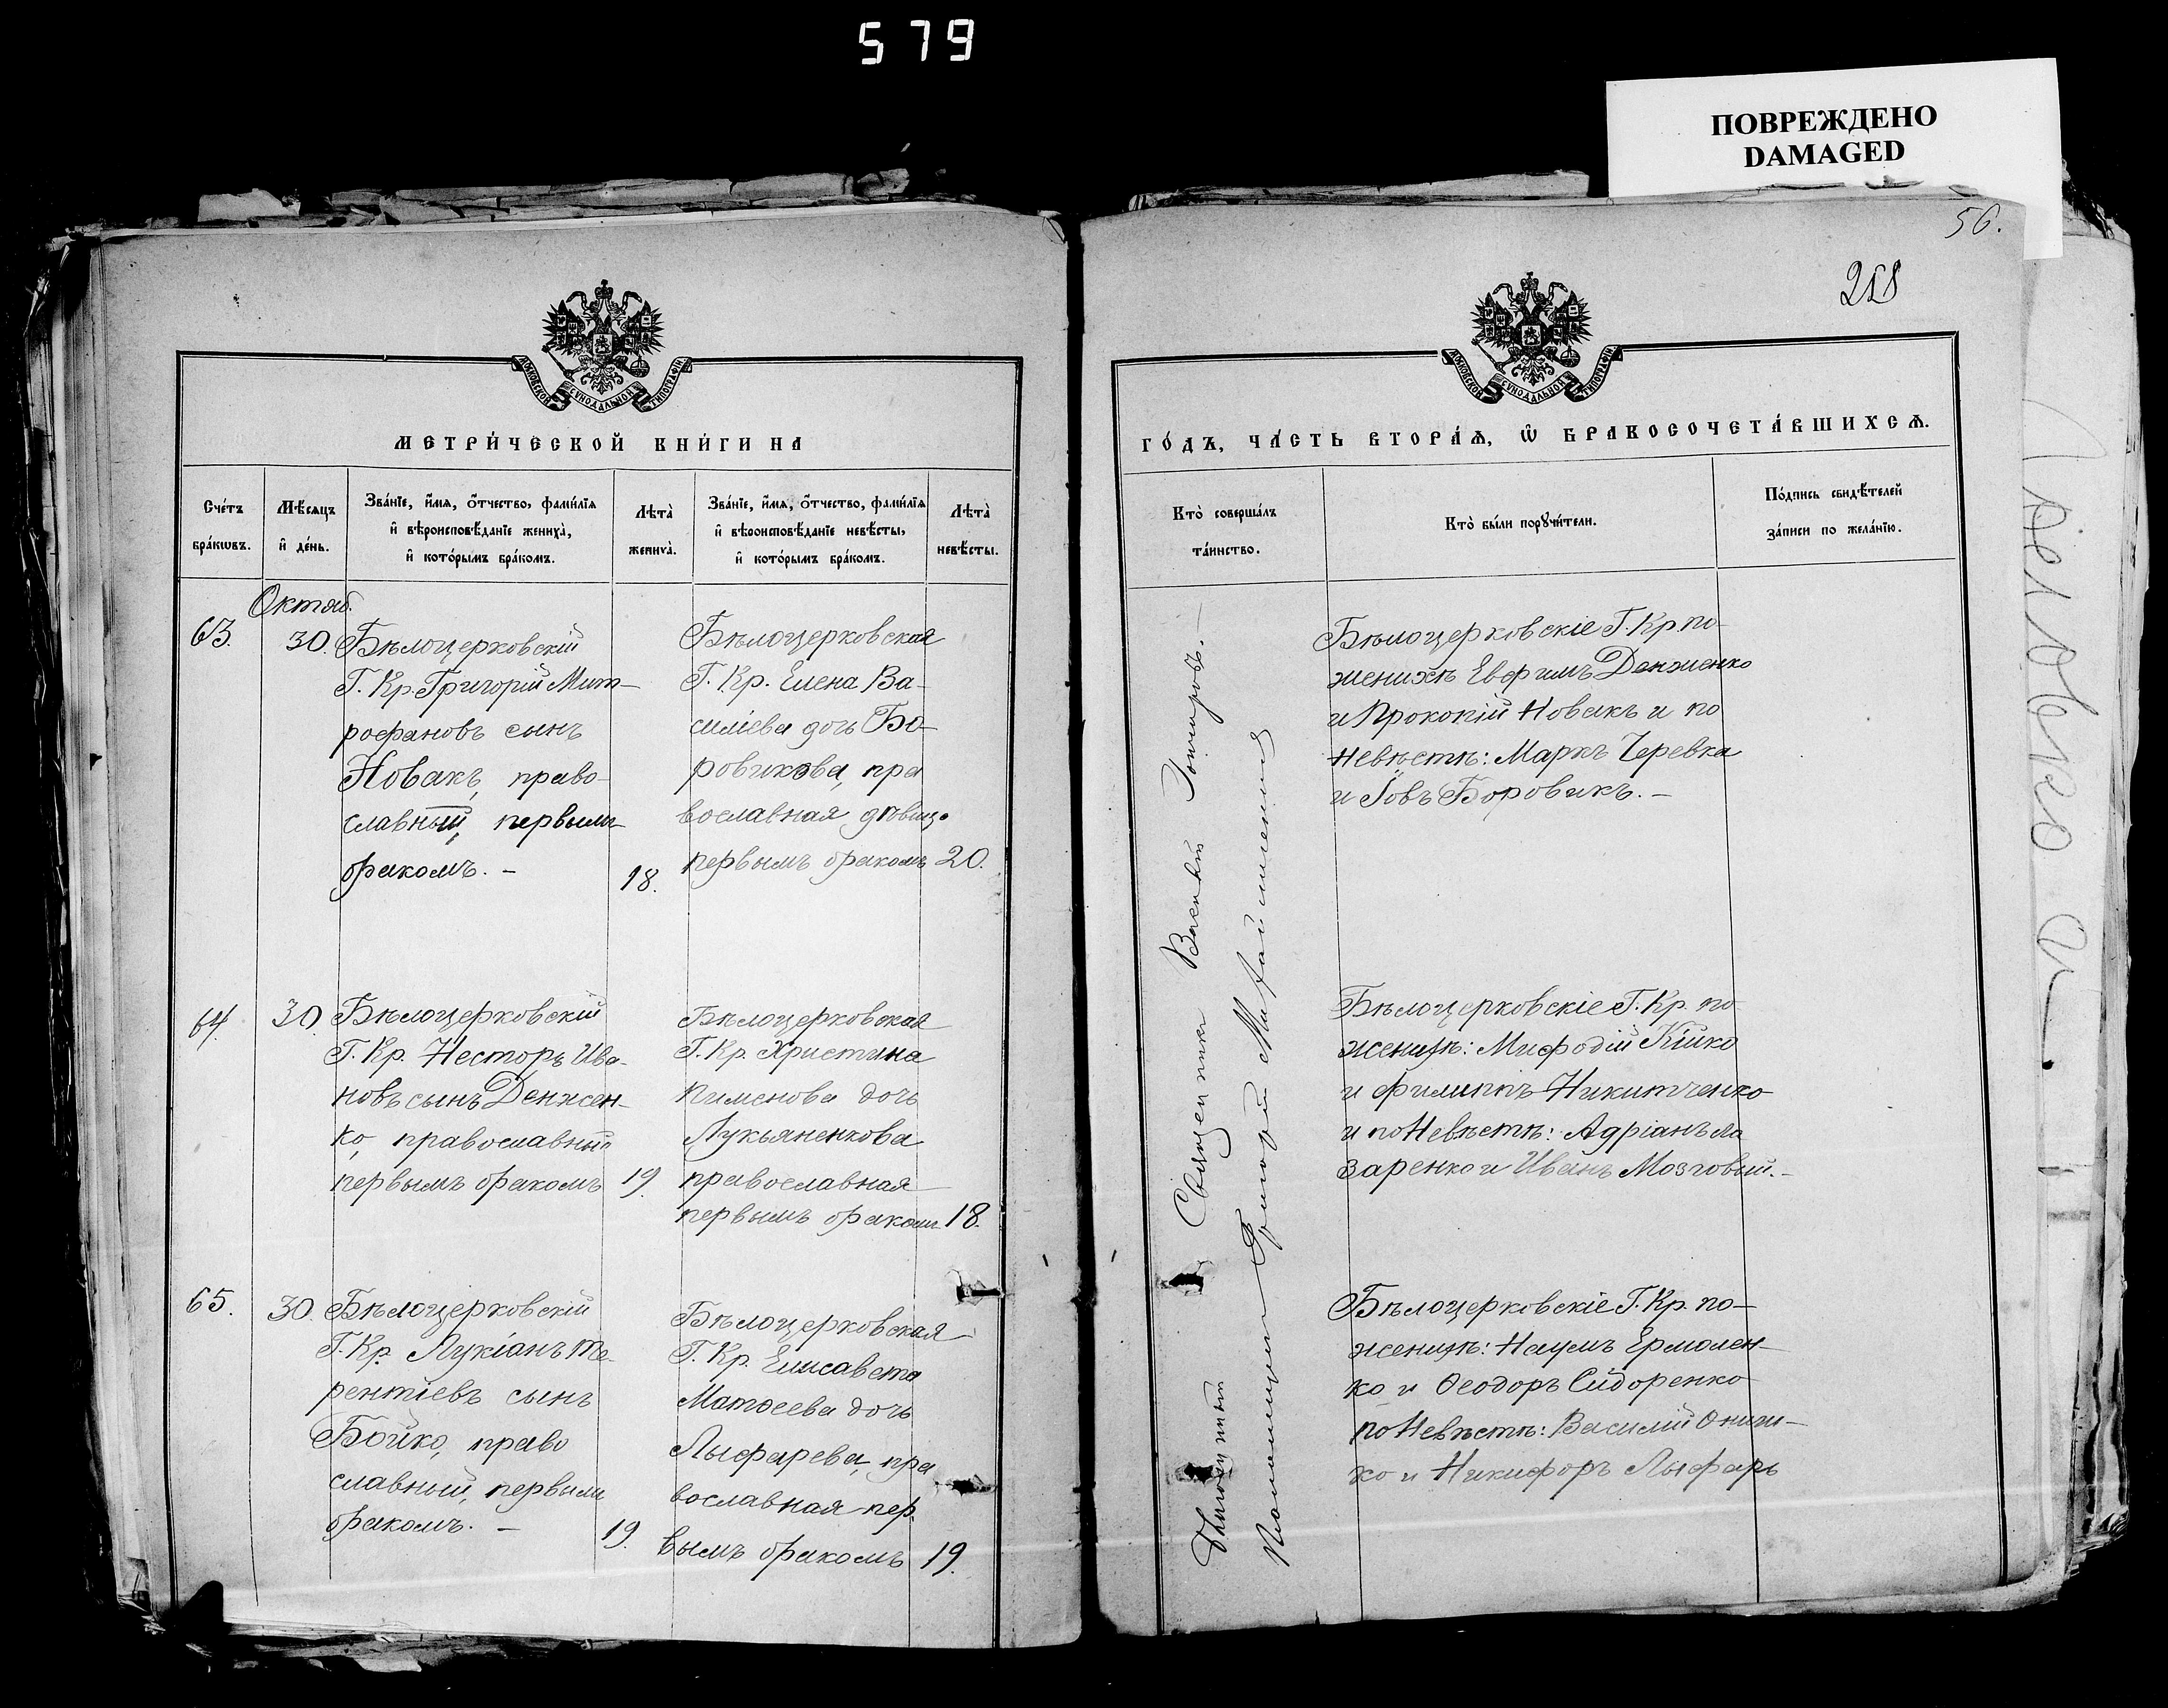 579
ПОВРЕЖДЕНО
DAMAGED
56.
МОСКОВСКОЙ СѴНОДАЛЬНОЙ ТИПОГРАФІИ
МЕТРИ́ЧЕСКОЙ КНИ́ГИ НА
Сче́тъ бра́кѡвъ.
Мѣ́сяцъ и҆ де́нь.
Зва́нїе, и҆́мѧ, ѻ҆́тчество, фами́лїѧ
и҆ вѣроисповѣ́данїе жениха̀,
и҆ кото́рымъ бра́комъ.
Лѣта̀ жениха̀.
Зва́нїе, и҆́мѧ, ѻ҆́тчество, фами́лїѧ
и҆ вѣроисповѣ́данїе невѣ́сты,
и҆ кото́рымъ бра́комъ.
Лѣта̀ невѣ́сты.
Октяб.
63. 30. Бѣлоцерковскій
Г. Кр. Григорій Мит-
рофановъ сынъ
Новакъ, право-
славный, первымъ
бракомъ. –
18.
Бѣлоцерковская
Г. Кр. Елена Ва-
силіева дочь Бо-
ровикова, пра
вославная дѣвица
первымъ бракомъ 20.
64. 30. Бѣлоцерковскій
Г. Кр. Несторъ Ива-
новъ сынъ Денжен-
ко, православный
первымъ бракомъ 19.
Бѣлоцерковская
Г. Кр. Христина
Пименова дочь
Лукьяненкова
православная
первымъ бракомъ 18.
65. 30. Бѣлоцерковскій
Г. Кр. Лукіанъ Те-
рентіевъ сынъ
Бойко, право
славный, первымъ
бракомъ. –
19.
Бѣлоцерковская
Г. Кр. Елисавета
Матѳеева дочь
Лыфарева, пра
вославная пер.
вымъ бракомъ 19.
МОСКОВСКОЙ СѴНОДАЛЬНОЙ ТИПОГРАФІИ
ГО́ДЪ, ЧА́СТЬ ВТОРА́Ѧ, Ѡ҆ БРАКОСОЧЕТА́ВШИХСѦ.
Кто̀ соверша́лъ
та́инство.
Кто̀ бы́ли порꙋчи́тели.
По́дпись свидѣ́телей
за́писи по жела́нїю.
Священникъ Василій
Григорій
Бѣлоцерковскіе Г. Кр. по-
женихѣ Евфимъ Денженко
и Прокопій Новакъ и по
невѣстѣ: Маркъ Черевка
и Іовъ Боровикъ. –
Бѣлоцерковскіе Г. Кр. по
женихѣ: Мифодій Кійко
и Филиппъ Никитченко
и по Невѣстѣ: Адріанъ ла
заренко и Иванъ Мозговый. –
Бѣлоцерковскіе Г. Кр. по-
женихѣ: Наумъ Ермолен-
ко и Ѳеодоръ Сидоренко
по Невѣстѣ: Василій Онищ-
ко и Никифоръ Лыфарь